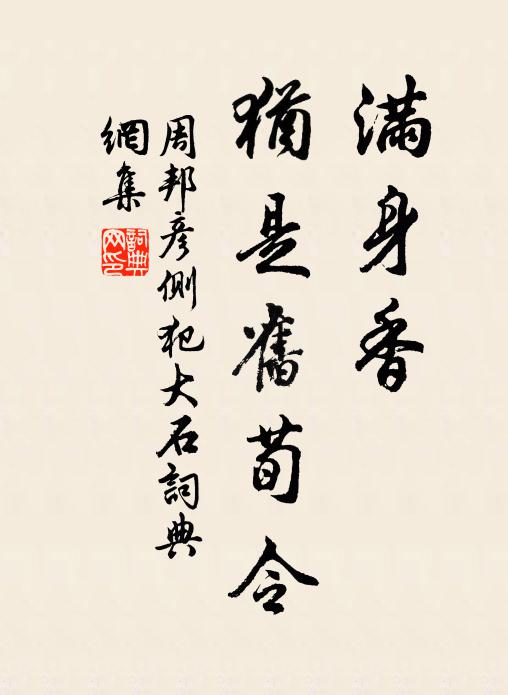 滿身香
猶是舊荀令
周邦彥側犯大石詞典
網集
詞典
网印